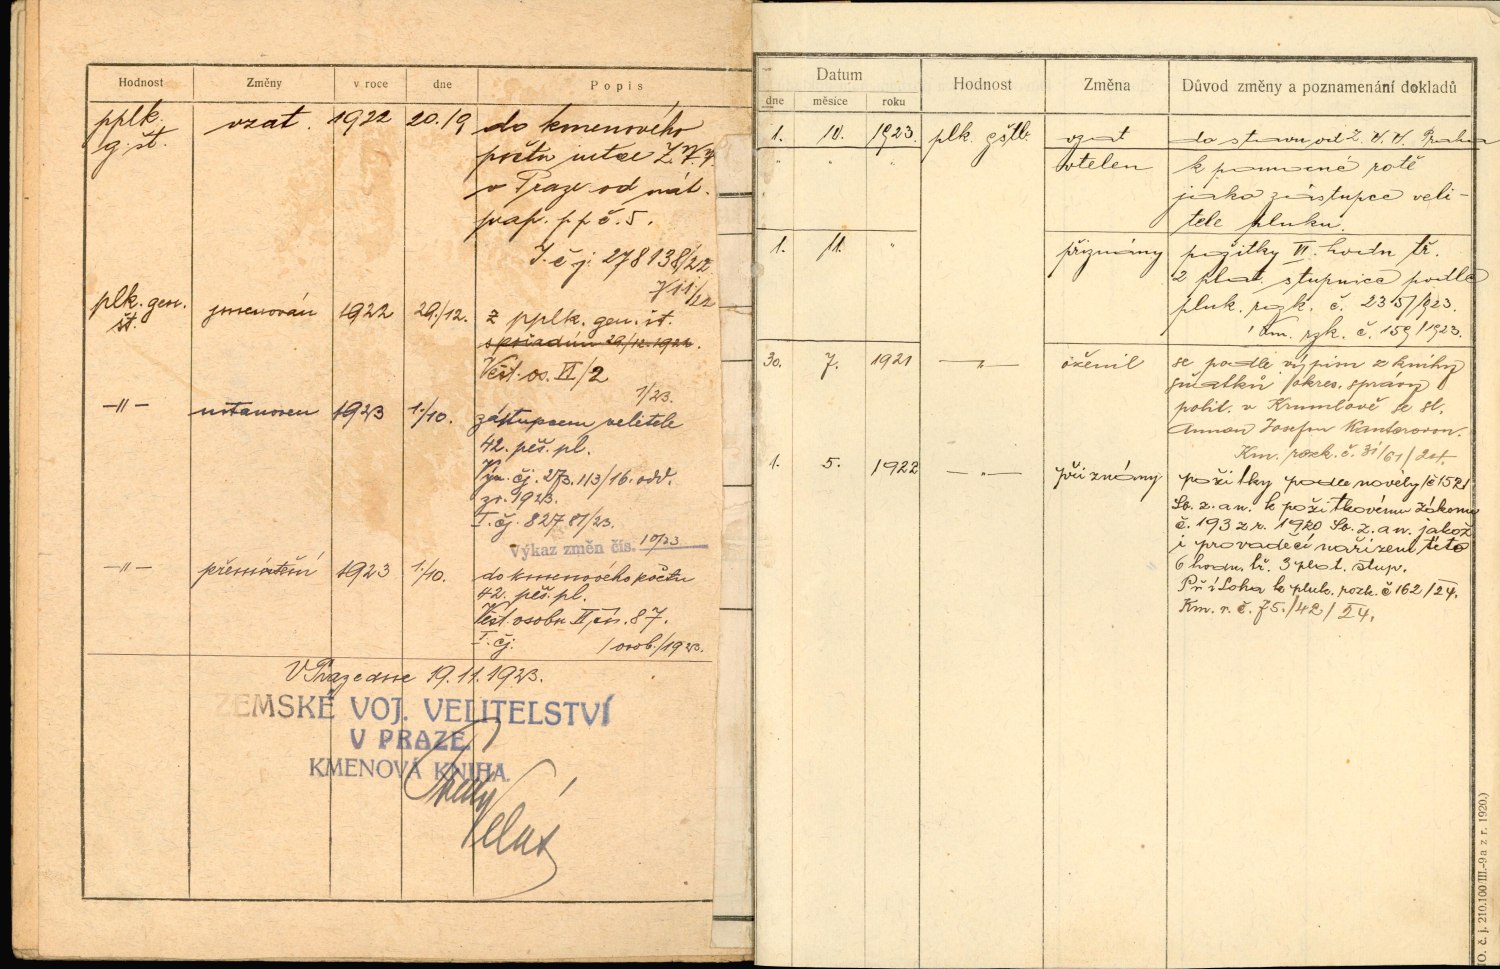 Hodnost Změny v roce dne Popis
pplk. vzat. 1922 20./9 do kmenového
g. št. počtu intce Z.V.V.
v Praze od nát.
prap. p p č. 5.
I. č j. 278138/22
11/22
plk. gen. jmenován 1922 29./12. z pplk. gen. št.
št. 29/12. 1922.
Věst. os. VI/2
1/23.
–"– ustanoven 1923 1./10. zástupcem velitele
42. pěš. pl.
Výn. čj. 273.113/16. odd.
zr. 1923.
I. čj. 82781/23.
Výkaz změn čís. 10/23
–"– přemístění 1923 1./10. do kmenového počtu
42. pěš. pl.
Věst. osobn. II, čís. 87.
I. čj. / osob./1923.
V Praze dne 19. 11. 1923.
ZEMSKÉ VOJ. VELITELSTVÍ
V PRAZE.
KMENOVÁ KNIHA.
Datum Hodnost Změna Důvod změny a poznamenání dokladů
dne měsíce roku
1. 10. 1923. plk. gštb. vzat do stavu od Z. V. V. Praha
" " " vtelen k pomocné rotě
jako zástupce veli-
tele pluku.
1. 11. " přiznány požitky VI. hodn. tř.
2 plat. stupnice podle
pluk. rozk. č. 235/1923.
Km. rzk. č. 159/1923.
30. 7. 1921 –"– oženil se podle výpisu z knihy
sňatků okres. správy
polit. v Krumlově se sl.
Annou Josefou Kantorovou.
Km. rozk. č. 31/61/24.
1. 5. 1922 –"– přiznány požitky podle novely č 152/
Sb. z. a n. k požitkovému zákonu
č. 193 z r. 1920 Sb. z. a n. jakož
i prováděcí nařízení této
6 hodn. tř. 3 plat. stup.
Příloha k pluk. rozk. č 162/24.
Km. r. č. 75./42/24.
č. j. 210.100/III.-9a z r. 1920.)